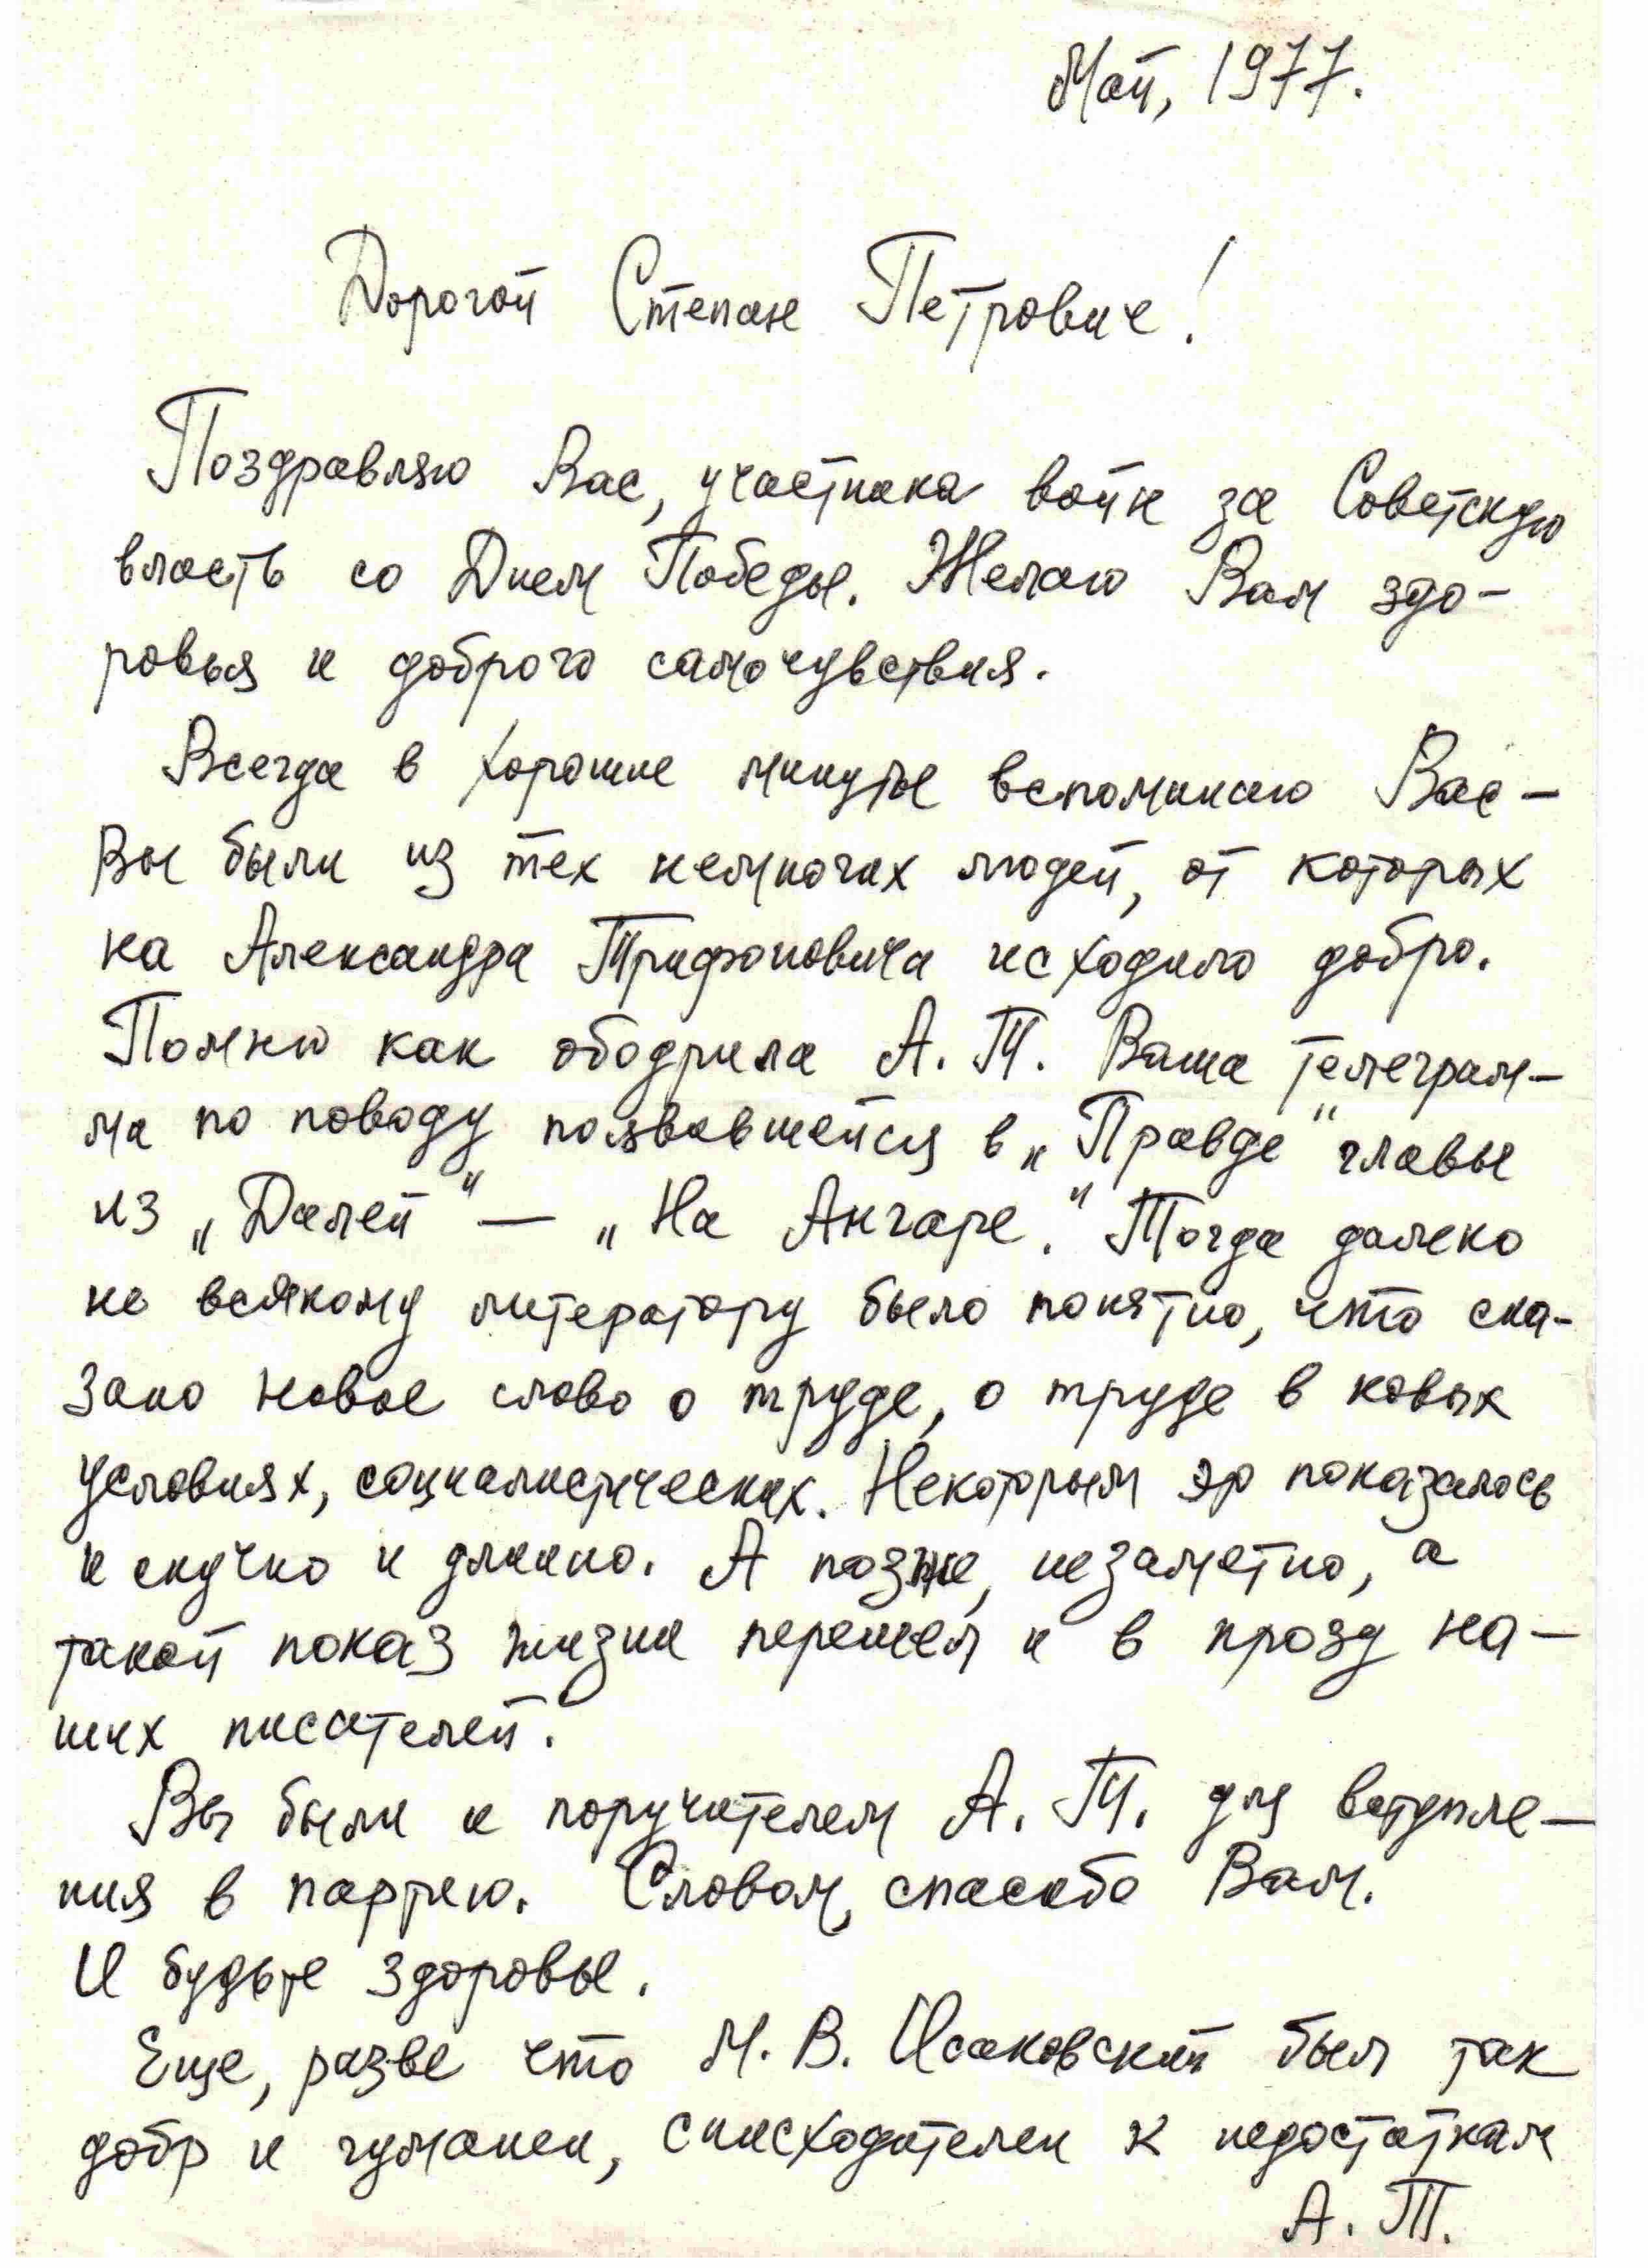 Май, 1977.
Дорогой Степан Петрович!
Поздравляю Вас, участника войн за Советскую
власть со Днем Победы. Желаю Вам здо-
ровья и доброго самочувствия.
Всегда в хорошие минуты вспоминаю Вас –
Вы были из тех немногих людей, от которых
на Александра Трифоновича исходило добро.
Помню как ободрила А. Т. Ваша телеграм-
ма по поводу появившейся в „Правде" главы
из „Далей" — „На Ангаре." Тогда далеко
не всякому литератору было понятно, что ска-
зано новое слово о труде, о труде в новых
условиях, социалистических. Некоторым это показалось
и скучно и длинно. А позже, незаметно, а
такой показ жизни перешел и в прозу на-
ших писателей.
Вы были и поручителем А. Т. для вступле-
ния в партию. Словом, спасибо Вам.
И будьте здоровы.
Еще, разве что М. В. Исаковский был так
добр и гуманен, снисходителен к недостаткам
А. Т.